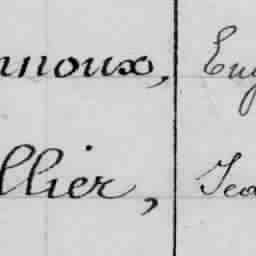 nnoux, Eug
llier, Jea